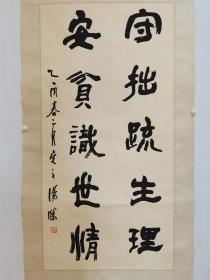 守拙疏生理
安貧識世情
乙酉春二月